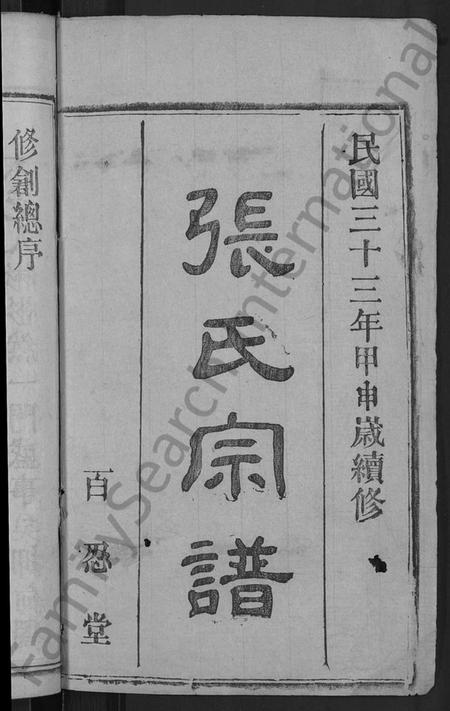 民國三十三年甲申歲續修
張氏宗譜
百忍堂
修創總序
FamilySearch International